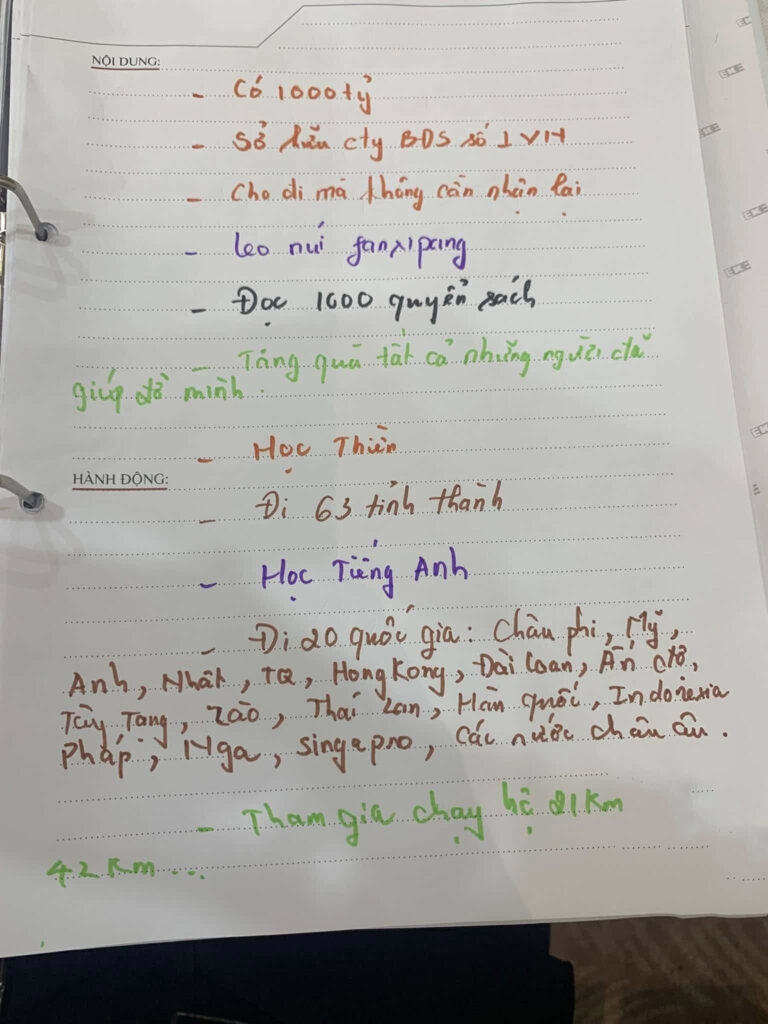 NỘI DUNG:
- Có 1000 tỷ
- Sở hữu cty BĐS số 1 VN
- Cho đi mà không cần nhận lại
- leo núi fanxipang
- Đọc 1000 quyển sách
- Tặng quà tất cả những người đã
giúp đỡ mình.
- Học Thiền
HÀNH ĐỘNG:
- Đi 63 tỉnh thành
- Học Tiếng Anh
- Đi 20 quốc gia: Châu phi, Mỹ,
Anh, Nhật, TQ, HongKong, Đài Loan, Ấn độ,
Tây Tạng, Lào, Thái Lan, Hàn quốc, Indonexia
Pháp, Nga, singapro, các nước châu âu.
- Tham gia chạy bộ 21Km
42Km...